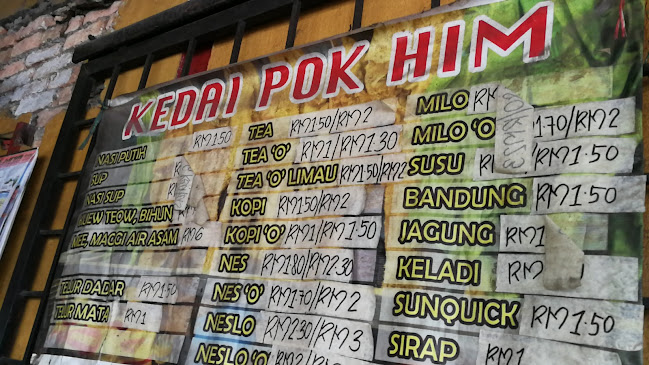 KEDAI POK HIM
NASI PUTIH RM150
SUP
NASI SUP
KUEW TEOW, BIHUN
MEE, MAGGI AIR ASAM RM6
TELUR DADAR RM150
TELUR MATA RM1
TEA RM150/RM2
TEA 'O' RM1/RM1.30
TEA 'O' LIMAU RM150/RM2
KOPI RM150/RM2
KOPI 'O' RM1/RM1.50
NES RM180/RM230
NES 'O' RM170/RM2
NESLO RM230/RM3
NESLO 'O' RM2/
MILO
MILO 'O' 170/RM2
SUSU RM1.50
BANDUNG RM1.50
JAGUNG RM1
KELADI RM
SUNQUICK RM1.50
SIRAP RM1